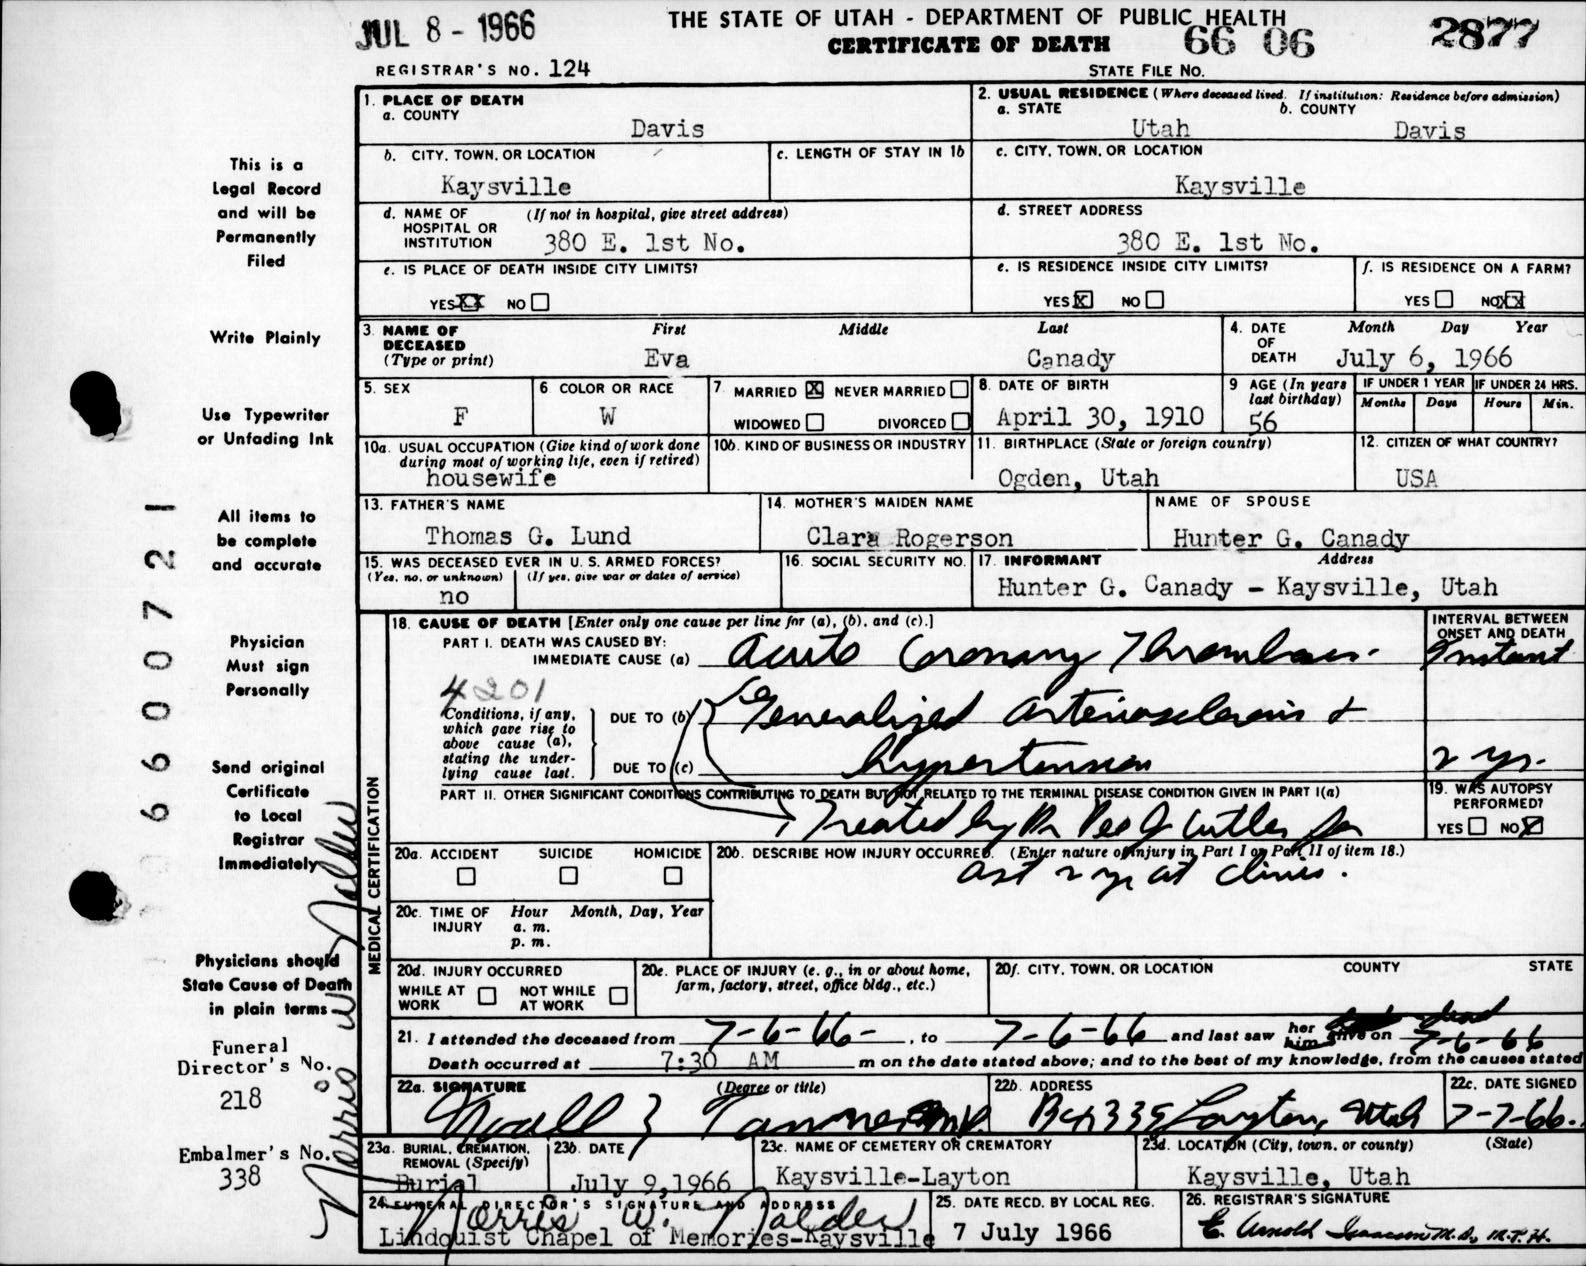 JUL 8 - 1966
THE STATE OF UTAH - DEPARTMENT OF PUBLIC HEALTH
CERTIFICATE OF DEATH 66 06 2877
REGISTRAR'S NO. 124
STATE FILE NO.
1. PLACE OF DEATH
a. COUNTY
Davis
2. USUAL RESIDENCE (Where deceased lived. If institution: Residence before admission)
a. STATE b. COUNTY
Utah Davis
b. CITY, TOWN, OR LOCATION
Kaysville
c. LENGTH OF STAY IN 1b
c. CITY, TOWN, OR LOCATION
Kaysville
d. NAME OF HOSPITAL OR INSTITUTION (If not in hospital, give street address)
380 E. 1st No.
d. STREET ADDRESS
380 E. 1st No.
e. IS PLACE OF DEATH INSIDE CITY LIMITS?
YES XX NO
e. IS RESIDENCE INSIDE CITY LIMITS?
YES X NO
f. IS RESIDENCE ON A FARM?
YES NO XX
3. NAME OF DECEASED (Type or print)
First Middle Last
Eva Canady
4. DATE OF DEATH
Month Day Year
July 6, 1966
5. SEX
F
6 COLOR OR RACE
W
7. MARRIED X NEVER MARRIED
WIDOWED DIVORCED
8. DATE OF BIRTH
April 30, 1910
9 AGE (In years last birthday)
56
IF UNDER 1 YEAR
Months Days
IF UNDER 24 HRS.
Hours Min.
10a. USUAL OCCUPATION (Give kind of work done during most of working life, even if retired)
housewife
10b. KIND OF BUSINESS OR INDUSTRY
11. BIRTHPLACE (State or foreign country)
Ogden, Utah
12. CITIZEN OF WHAT COUNTRY?
USA
13. FATHER'S NAME
Thomas G. Lund
14. MOTHER'S MAIDEN NAME
Clara Rogerson
NAME OF SPOUSE
Hunter G. Canady
15. WAS DECEASED EVER IN U.S. ARMED FORCES?
(Yes, no, or unknown) (If yes, give war or dates of service)
no
16. SOCIAL SECURITY NO.
17. INFORMANT Address
Hunter G. Canady - Kaysville, Utah
MEDICAL CERTIFICATION
18. CAUSE OF DEATH [Enter only one cause per line for (a), (b), and (c).]
PART I. DEATH WAS CAUSED BY:
IMMEDIATE CAUSE (a) Acute Coronary Thrombosis.
INTERVAL BETWEEN ONSET AND DEATH
Instant
4201
Conditions, if any, which gave rise to above cause (a), stating the underlying cause last.
DUE TO (b) Generalized arteriosclerosis &
DUE TO (c) hypertension
2 yr.
PART II. OTHER SIGNIFICANT CONDITIONS CONTRIBUTING TO DEATH BUT NOT RELATED TO THE TERMINAL DISEASE CONDITION GIVEN IN PART I(a)
Treated by Dr Cutler for
19. WAS AUTOPSY PERFORMED?
YES NO X
20a. ACCIDENT SUICIDE HOMICIDE
20b. DESCRIBE HOW INJURY OCCURRED. (Enter nature of injury in Part I or Part II of item 18.)
ast 2 yr at clinic.
20c. TIME OF INJURY Hour Month, Day, Year
a. m.
p. m.
20d. INJURY OCCURRED
WHILE AT WORK NOT WHILE AT WORK
20e. PLACE OF INJURY (e. g., in or about home, farm, factory, street, office bldg., etc.)
20f. CITY, TOWN, OR LOCATION COUNTY STATE
21. I attended the deceased from 7-6-66 , to 7-6-66 and last saw her him alive on dead 7-6-66
Death occurred at 7:30 AM m on the date stated above; and to the best of my knowledge, from the causes stated
22a. SIGNATURE (Degree or title)
Noall Z Tanner MD
22b. ADDRESS
Box 335 Layton, Utah
22c. DATE SIGNED
7-7-66.
23a. BURIAL, CREMATION, REMOVAL (Specify)
Burial
23b. DATE
July 9,1966
23c. NAME OF CEMETERY OR CREMATORY
Kaysville-Layton
23d. LOCATION (City, town, or county) (State)
Kaysville, Utah
24. FUNERAL DIRECTOR'S SIGNATURE AND ADDRESS
Norris W. Nalder
Lindquist Chapel of Memories-Kaysville
25. DATE RECD. BY LOCAL REG.
7 July 1966
26. REGISTRAR'S SIGNATURE
E. Arnold Isaacson M.D., M.P.H.
This is a
Legal Record
and will be
Permanently
Filed
Write Plainly
Use Typewriter
or Unfading Ink
All items to
be complete
and accurate
Physician
Must sign
Personally
Send original
Certificate
to Local
Registrar
Immediately
Physicians should
State Cause of Death
in plain terms
Funeral
Director's No.
218
Embalmer's No.
338
6600721
Norris W Nalder